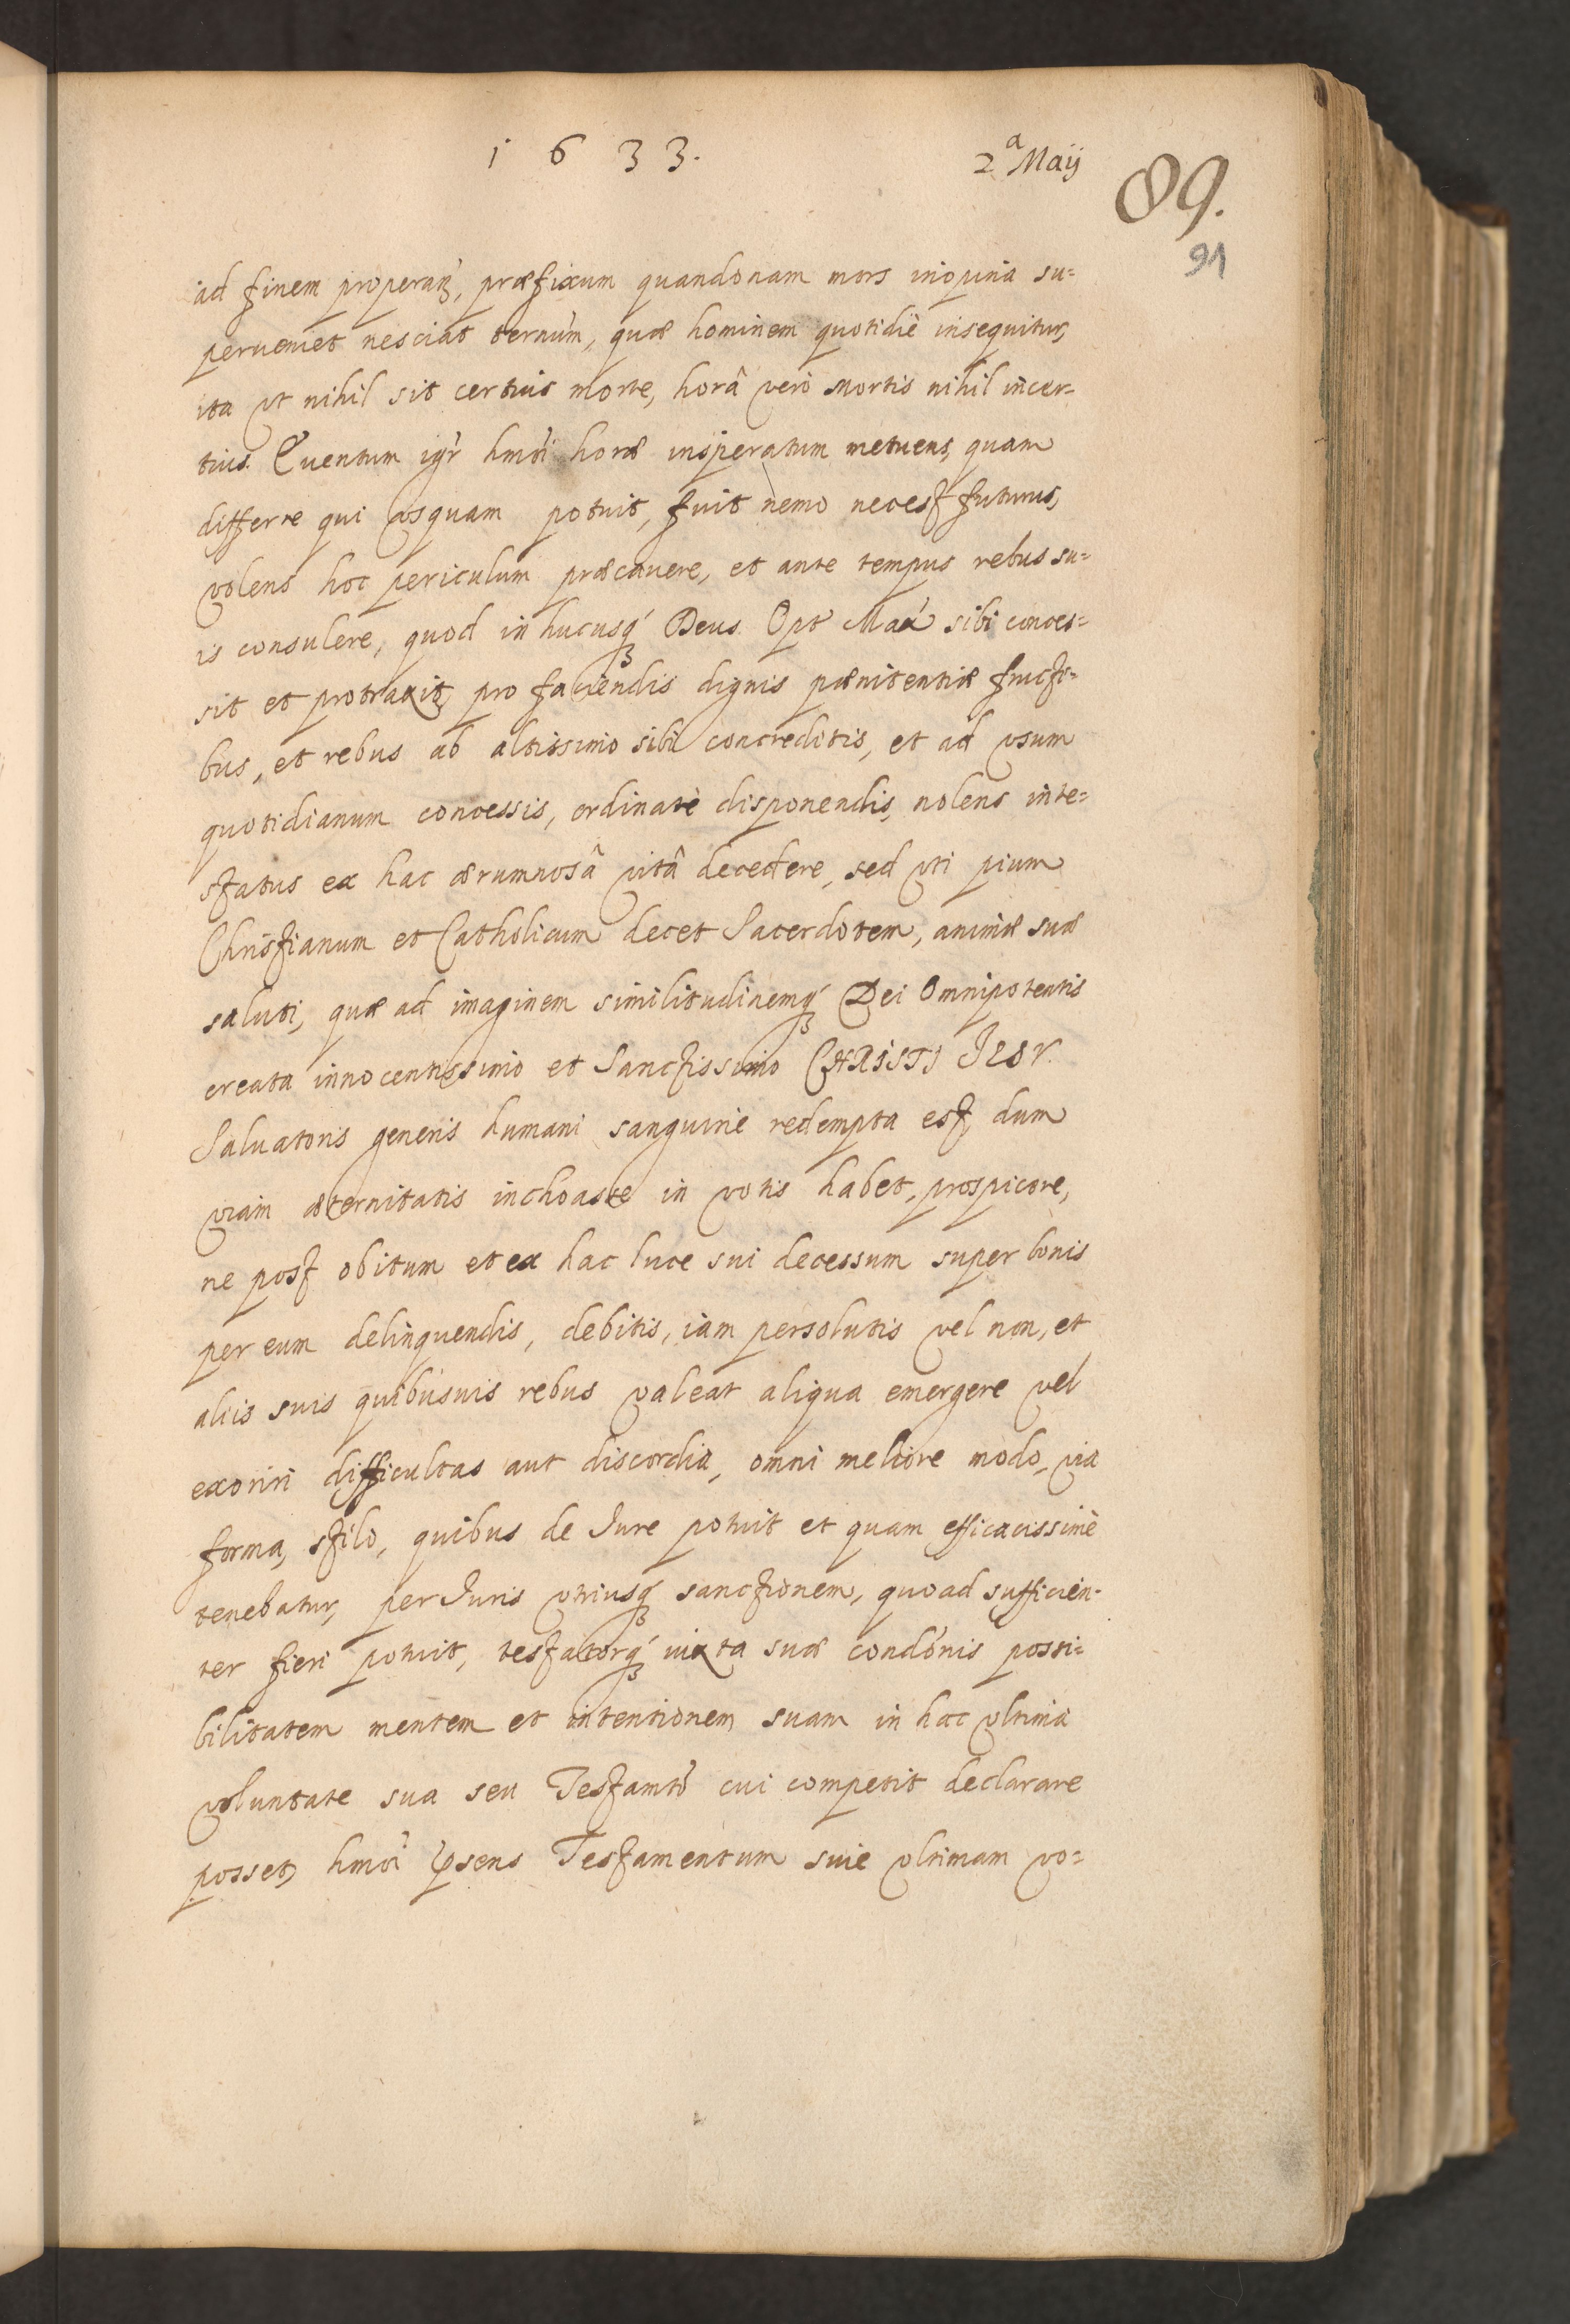 1633.
2ª Maij
89.
91
ad finem properanꝫ, præfixum quandonam mors inopina su=
perueniet nesciat termũm, quæ hominem quotidiè insequitur,
ita vt nihil sit certius morte, horâ verò mortis nihil incer=
tius. Euentum igr̃ hmõi horæ insperatum metuens, quam
differre qui vsquam potuit, fuit nemo nec est futurus,
volens hoc periculum præcauere, et ante tempus rebus su=
is consulere, quod in hucusqꝫ Deus Opt Max sibi conces=
sit et protraxit, pro faciendis dignis pænitentiæ fructi=
bus, et rebus ab altissimo sibi concreditis, et ad vsum
quotidianum concessis, ordinatè disponendis, nolens inte=
status ex hac ærumnosâ vitâ decedere, sed vti pium
Christianum et Catholicum decet Sacerdotem, animæ suæ
saluti, quæ ad imaginem similitudinemqꝫ Dei Omnipotentis
creata innocentissimo et Sanctissimo CHRISTI IESV.
Saluatoris generis humani sanguine redempta est, dum
viam æternitatis inchoaste in votis habet, prospicere,
ne post obitum et ex hac luce sui decessum super bonis
per eum delinquendis, debitis, iam persolutis vel non, et
aliis suis quibusuis rebus valeat aliqua emergere vel
exoriri difficultas aut discordia, omni meliore modo, via
forma, stilo, quibus de Iure potuit et quam efficacissimè
tenebatur, per Iuris vtriusqꝫ sanctionem, quoad sufficien=
ter fieri potuit, testatorqꝫ iuxta suæ condõnis possi=
bilitatem mentem et intentionem suam in hac vltima
voluntate sua seu Testamtõ cui competit declarare
posset, hmõi p̃sens Testamentum siue vltimam vo=